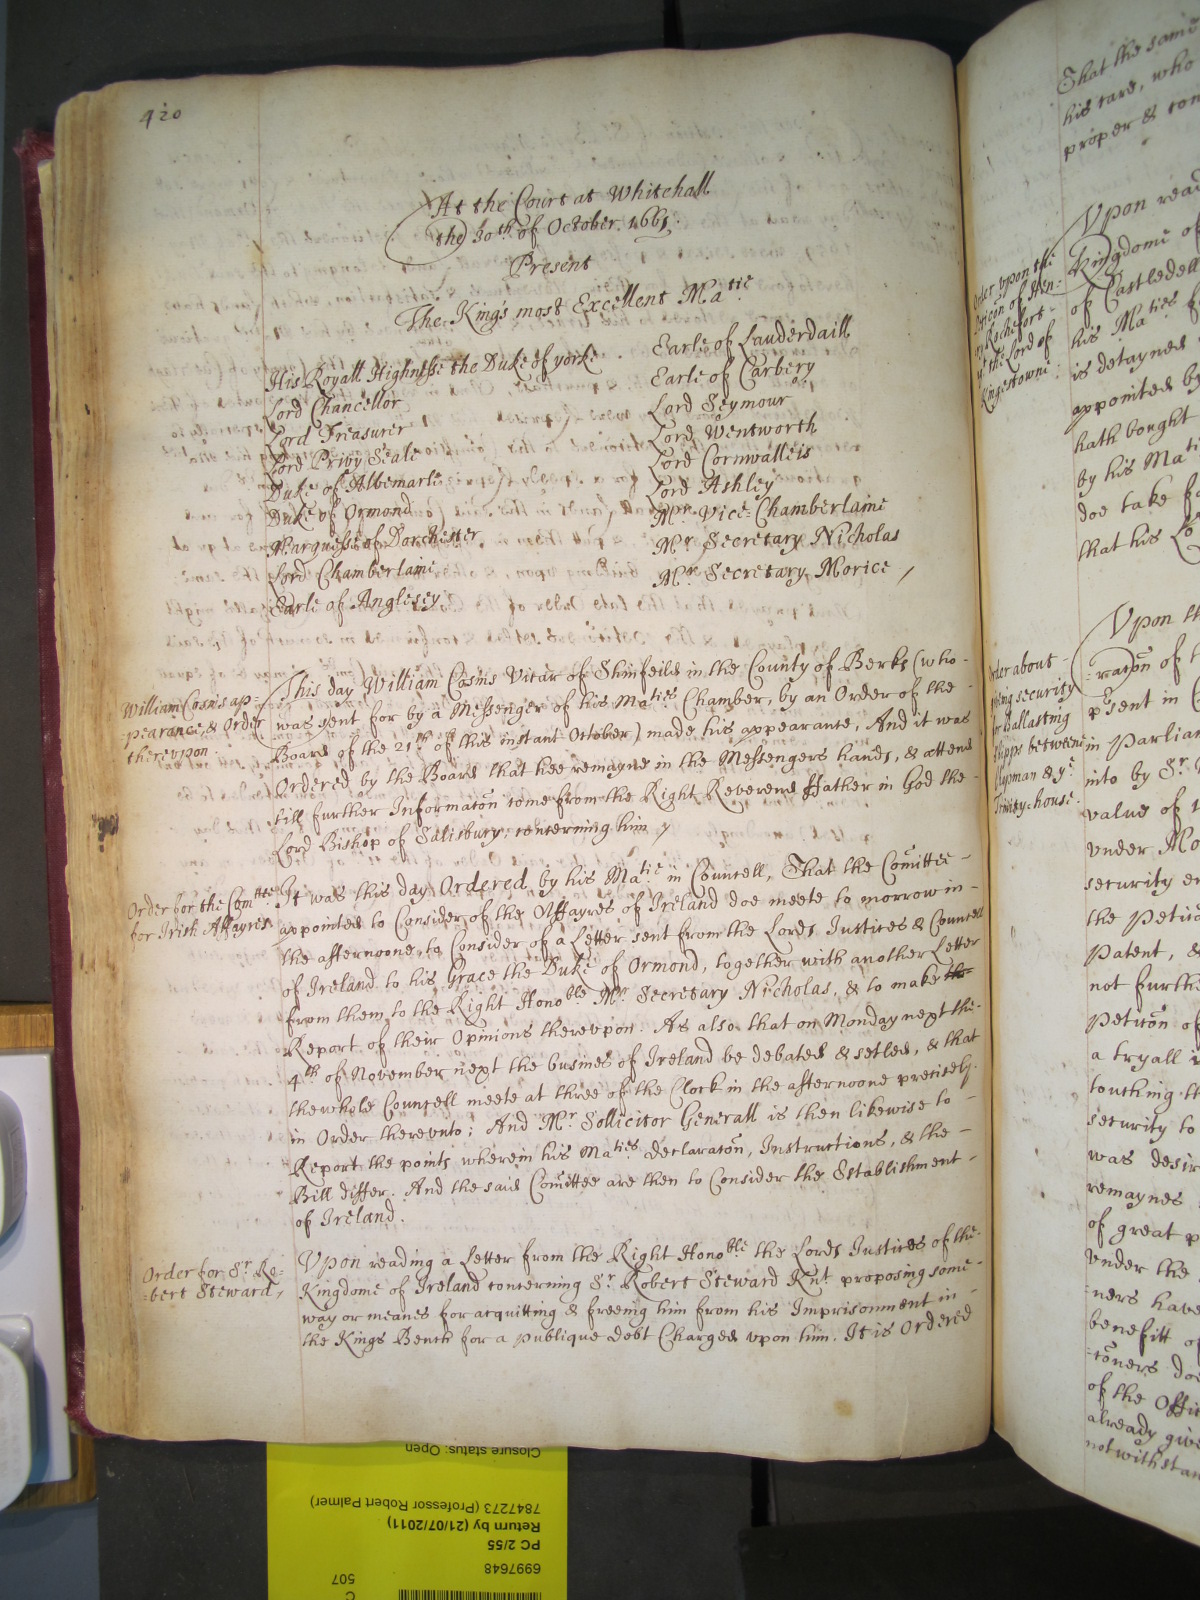 420
At the Court at Whitehall
the 30th of October. 1661.
Present
The Kings most Excellent Matie
His Royall Highnesse the Duke of yorke
Lord Chancellor
Lord Treasurer
Lord Privy Seale
Duke of Albemarle
Duke of Ormond
Marquesse of Dorchester
Lord Chamberlaine
Earle of Anglesey
Earle of Lauderdaill
Earle of Carbery
Lord Seymour
Lord Wentworth
Lord Cornwalleis
Lord Ashley
Mr. Vice-Chamberlaine
Mr Secretary Nicholas
Mr Secretary Morice
William Cosins ap-
-pearance, & Order
therevpon
This day William Cosins Vicar of Shinfeild in the County of Berks (who
was sent for by a Messenger of his Maties Chamber, by an Order of the
Board of the 21th of this instant October) made his appearance, And it was
Ordered by the Board that hee remayne in the Messengers hands, & attend
till further Informacon come from the Right Reverend ffather in God the
Lord Bishop of Salisbury, concerning him
Order for the Comttee
for Irish Affayres
It was this day Ordered by his Matie in Councell, That the Comittee
appointed to Consider of the Affayres of Ireland doe meete to morrow in
the afternoone, to Consider of a Letter sent from the Lords Justices & Councell
of Ireland to his Grace the Duke of Ormond, together with another Letter
from them to the Right Honoble Mr Secretary Nicholas, & to make the
Report of their Opinions therevpon. As also that on Monday next the
4th of November next the busines of Ireland be debated & setled, & that
the whole Councell meete at three of the Clock in the afternoone precisely
in Order therevnto; And Mr Sollicitor Generall is then likewise to
Report the points wherein his Maties declaracon, Instructions, & the
Bill differ. And the said Comittee are then to Consider the Establishment
of Ireland.
Order for Sr Ro-
-bert Steward,
Upon reading a Letter from the Right Honoble the Lords Justices of the
Kingdome of Ireland concerning Sr Robert Steward Knt proposing some
way or meanes for acquitting & freeing him from his Imprisonment in
the Kings Bench for a publique debt Charged vpon him. It is Ordered
That the same
his care, who
proper & con
Vpon read
Kingdome of
of Castledell
his Maties
is detayned
appointed by
hath bought
by his Matie
doe take
that his Lo
Order vpon the
of Hen-
ry Rochefort
ye the Lord of
Kingestowne
Order about
security
for Ballasting
Shipps betweene
& ye
Trinity-house
Vpon th
psent in
in Parliam
into by Sr
value of
vnder
security
the Peticon
Patent, &
not furthe
Peticon of
a tryall
touching th
security to
was desir
remaynes
of great p
vnder the
-ners have
benefitt of
-coners doe
of the Offic
already give
notwithstan
Closure status: Open
7847273 (Professor Robert Palmer)
Return by (21/07/2011)
PC 2/55
6997648
507
C